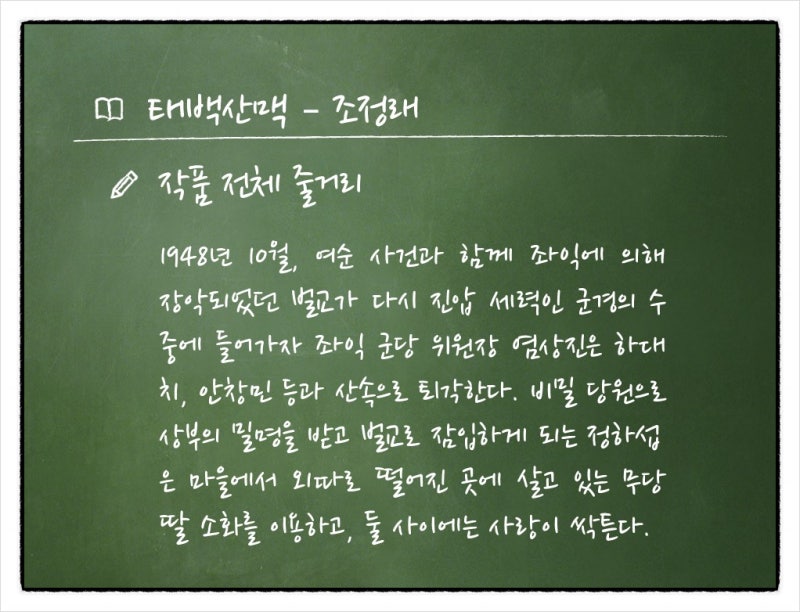 태백산맥 - 조정래
작품 전체 줄거리
1948년 10월, 여순 사건과 함께 좌익에 의해
장악되었던 벌교가 다시 진압 세력인 군경의 수
중에 들어가자 좌익 군당 위원장 염상진은 하대
치, 안창민 등과 산속으로 퇴각한다. 비밀 당원으로
상부의 밀명을 받고 벌교로 잠입하게 되는 정하섭
은 마을에서 외따로 떨어진 곳에 살고 있는 무당
딸 소화를 이용하고, 둘 사이에는 사랑이 싹튼다.